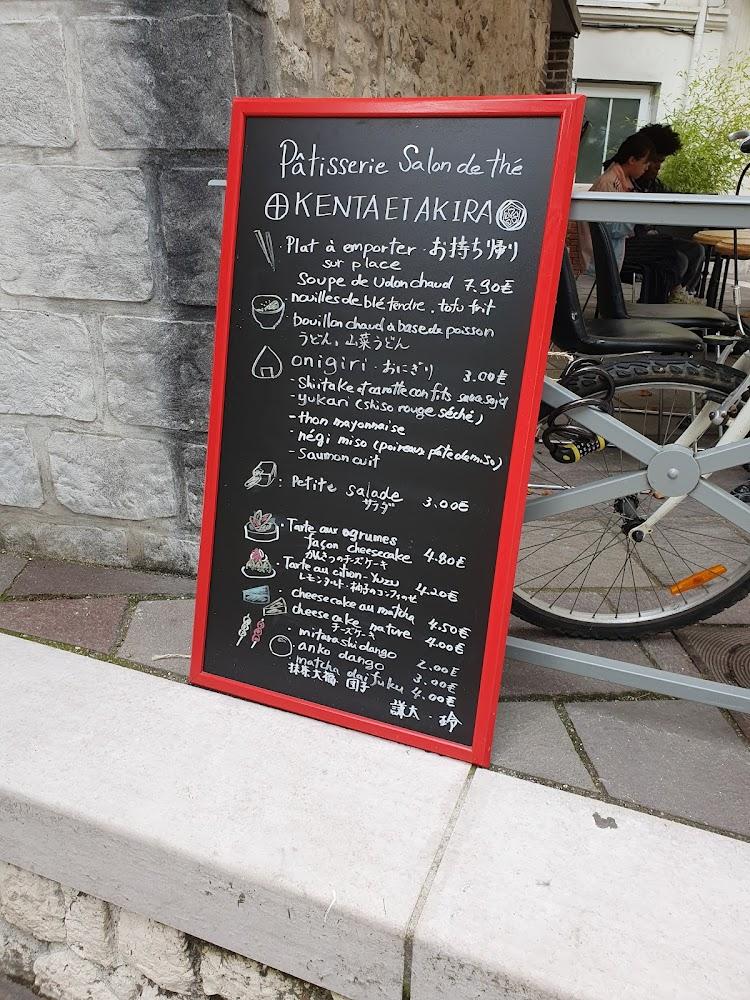 Pâtisserie Salon de thé
KENTA ET AKIRA
· Plat à emporter · お持ち帰り
sur place
Soupe de udon chaud 7.90€
nouilles de blé tendre. tofu frit
bouillon chaud à base de poisson
うどん、山菜うどん
onigiri · おにぎり 3.00€
- Shiitake et carotte confits sauce soja
- yukari (shiso rouge séché)
- thon mayonnaise
- négi miso (poireaux pâte de miso)
- Saumon cuit
· Petite salade 3.00€
サラダ
· Tarte aux agrumes
façon cheesecake 4.80€
かんきつのチーズケーキ
· Tarte au citron - yuzu 4.20€
レモンタルト・柚子のコンフィ
· cheesecake au matcha 4.50€
· cheese cake nature 4.00€
チーズケーキ
· mitarashi dango 2.00€
anko dango 3.00€
· matcha daifuku 4.00€
抹茶大福 団子
謙太・玲